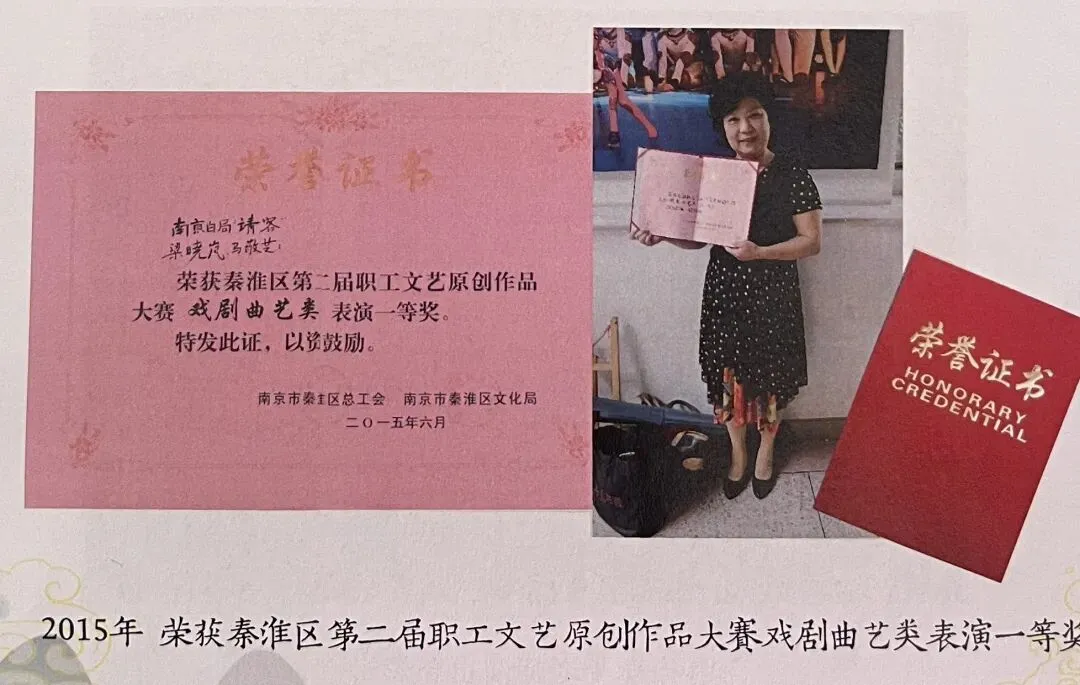 荣誉证书
南京白局"请客"
梁晓岚 马敬芝：
荣获秦淮区第二届职工文艺原创作品
大赛 戏剧曲艺类 表演一等奖。
特发此证，以资鼓励。
南京市秦淮区总工会 南京市秦淮区文化局
二〇一五年六月
荣誉证书
HONORARY
CREDENTIAL
2015年 荣获秦淮区第二届职工文艺原创作品大赛戏剧曲艺类表演一等奖